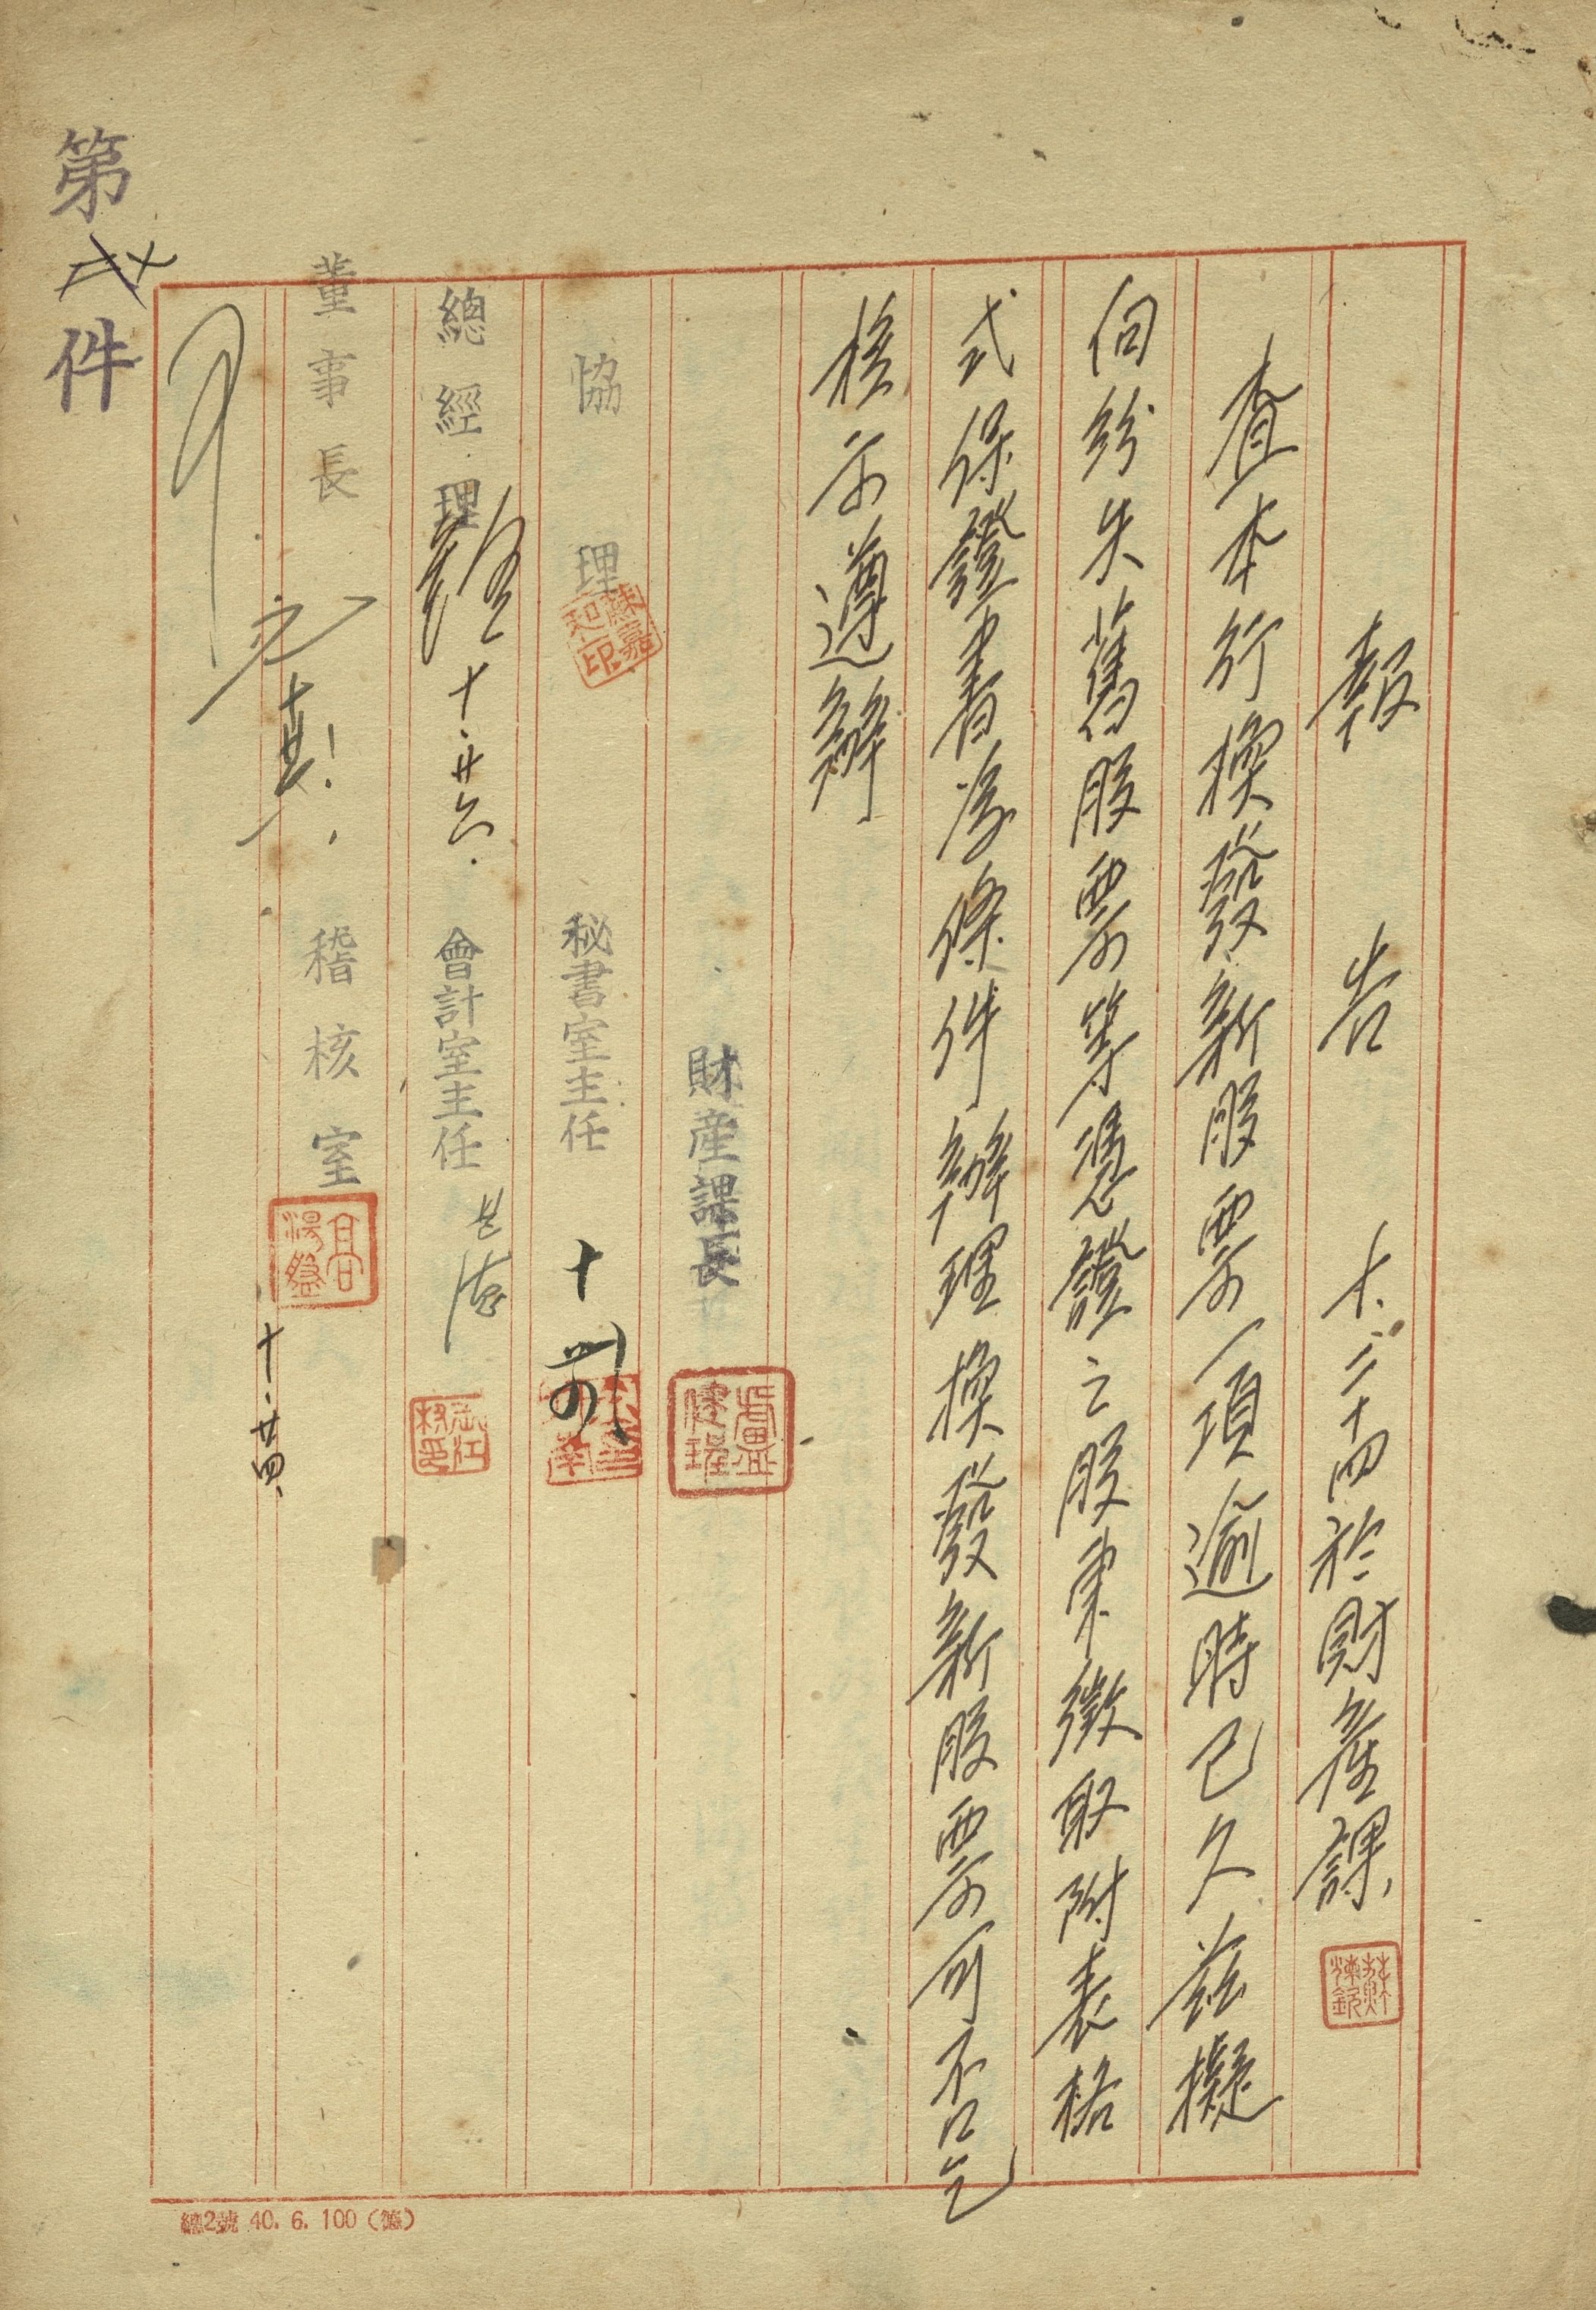 報告 十、二十四於財產課
查本行換發新股票一項逾時已久茲擬
向紛失舊股票等憑證之股東徵取附表格
式保證書為條件辦理換發新股票可否乞
核示遵辦
財產課長
協理
秘書室主任
總經理 十、廿六.
會計室主任
董事長
稽核室 十、廿四、
第 件
總2號 40. 6. 100